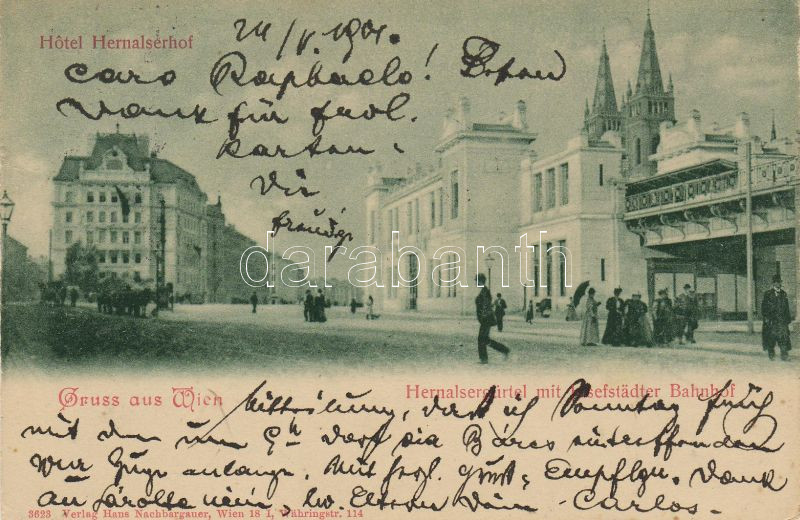 Hôtel Hernalserhof
24/V. 1901.
Caro Raphaelo! Besten
Dank für frdl.
Karten.
Die
freudige
darabanth
Gruss aus Wien
Hernalsergürtel mit Josefstädter Bahnhof
Mitteilung, dass ich Sonntag früh
mit dem um 9h dort via Bács eintreffenden
Zuge anlange. Mit frdl. Empfhlgn. Dank
Eltern Dein Carlos.
3623 Verlag Hans Nachbargauer, Wien 18 I, Währingstr. 114